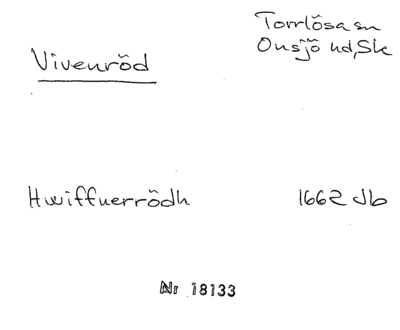 Torrlösa sn
Vivenröd
Onsjö hd, Sk
Hwiffuerrödh 1662 Jb
Nr 18133